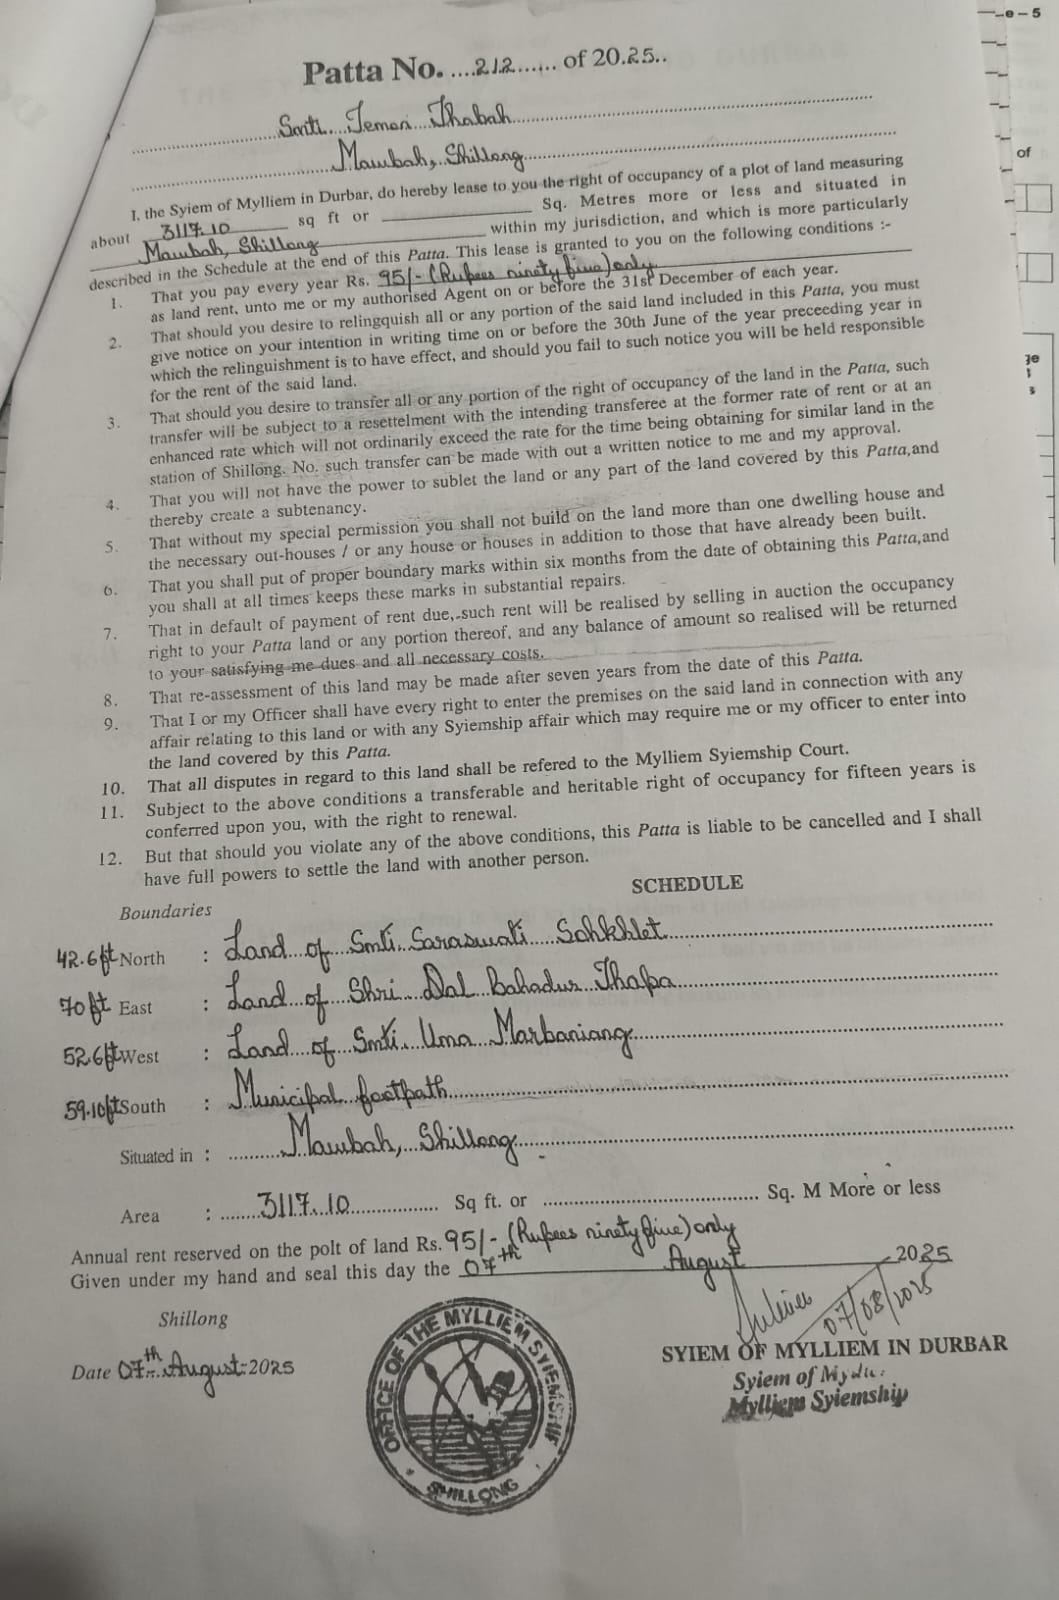 e - 5
Patta No. ....212...... of 2025..
Smti. Temori Thabah
Mawbah, Shillong
of
I, the Syiem of Mylliem in Durbar, do hereby lease to you the right of occupancy of a plot of land measuring
about 3117.10 sq ft or ____________ Sq. Metres more or less and situated in
Mawbah, Shillong within my jurisdiction, and which is more particularly
described in the Schedule at the end of this Patta. This lease is granted to you on the following conditions :-
1. That you pay every year Rs. 95/- (Rupees ninety five) only
as land rent, unto me or my authorised Agent on or before the 31st December of each year.
2. That should you desire to relingquish all or any portion of the said land included in this Patta, you must
give notice on your intention in writing time on or before the 30th June of the year preceeding year in
which the relinguishment is to have effect, and should you fail to such notice you will be held responsible
for the rent of the said land.
3. That should you desire to transfer all or any portion of the right of occupancy of the land in the Patta, such
transfer will be subject to a resettelment with the intending transferee at the former rate of rent or at an
enhanced rate which will not ordinarily exceed the rate for the time being obtaining for similar land in the
station of Shillong. No. such transfer can be made with out a written notice to me and my approval.
4. That you will not have the power to sublet the land or any part of the land covered by this Patta,and
thereby create a subtenancy.
5. That without my special permission you shall not build on the land more than one dwelling house and
the necessary out-houses / or any house or houses in addition to those that have already been built.
6. That you shall put of proper boundary marks within six months from the date of obtaining this Patta,and
you shall at all times keeps these marks in substantial repairs.
7. That in default of payment of rent due, such rent will be realised by selling in auction the occupancy
right to your Patta land or any portion thereof, and any balance of amount so realised will be returned
to your satisfying me dues and all necessary costs.
8. That re-assessment of this land may be made after seven years from the date of this Patta.
9. That I or my Officer shall have every right to enter the premises on the said land in connection with any
affair relating to this land or with any Syiemship affair which may require me or my officer to enter into
the land covered by this Patta.
10. That all disputes in regard to this land shall be refered to the Mylliem Syiemship Court.
11. Subject to the above conditions a transferable and heritable right of occupancy for fifteen years is
conferred upon you, with the right to renewal.
12. But that should you violate any of the above conditions, this Patta is liable to be cancelled and I shall
have full powers to settle the land with another person.
SCHEDULE
Boundaries
42.6ft North : Land of Smti. Saraswati Sohkhlet
70ft East : Land of Shri Dal Bahadur Thapa
52.6ft West : Land of Smti. Uma Marbaniang
59.10ft South : Municipal footpath
Situated in : Mawbah, Shillong
Area : 3117.10 Sq ft. or ............ Sq. M More or less
Annual rent reserved on the polt of land Rs. 95/- (Rupees ninety five) only
Given under my hand and seal this day the 07th August 2025
07/08/2025
Shillong
SYIEM OF MYLLIEM IN DURBAR
Date 07th August 2025
Syiem of
Mylliem Syiemship
OFFICE OF THE MYLLIEM SYIEMSHIP
SHILLONG